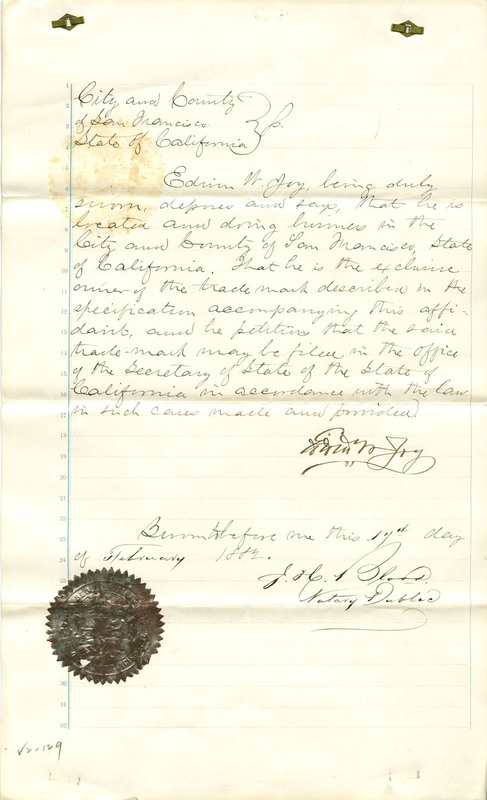 City and County
of San Francisco
State of California
Edwin W. Joy, being duly
sworn, deposes and says, that he is
located and doing business in the
City and County of San Francisco, State
of California. That he is the exclusive
owner of the trade mark described in the
specification accompanying this affi-
davit, and he petitions that the said
trade-mark may be filed in the office
of the Secretary of State of the State of
California in accordance with the law
in such cases made and provided
Edwin W Joy
before me this day
of February 1882.
J. H. Blood
Notary Public
1
2
3
4
5
6
7
8
9
10
11
12
13
14
15
16
17
18
19
20
21
22
23
24
25
30
31
32